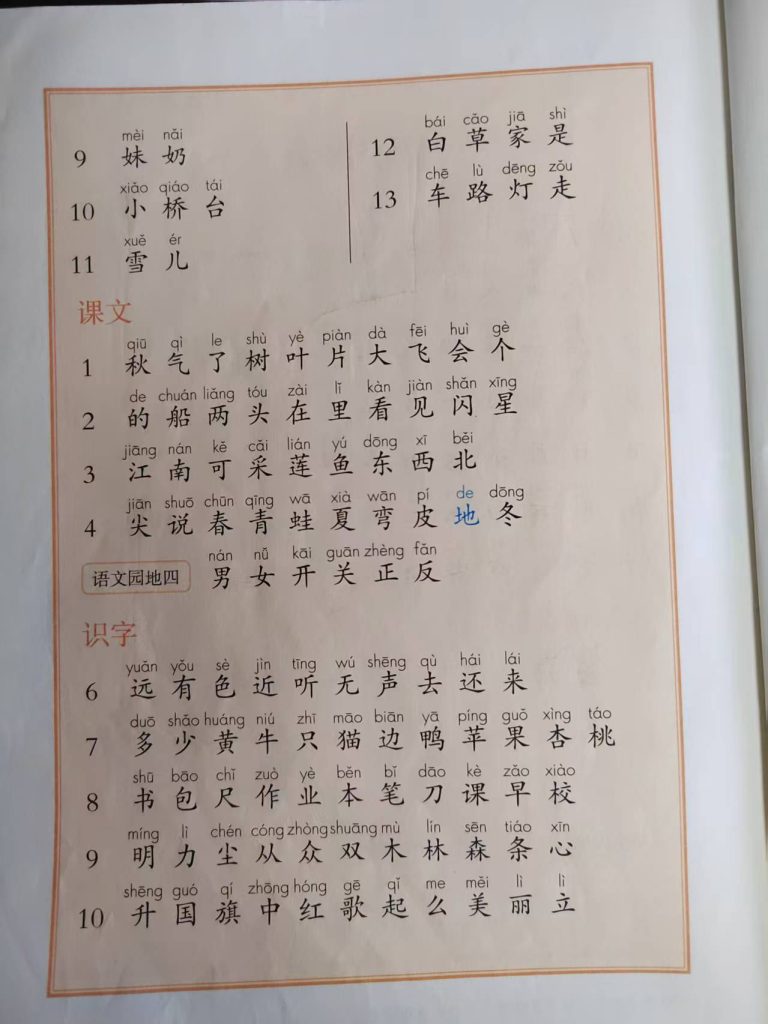 mèi nǎi
9 妹 奶
xiǎo qiáo tái
10 小 桥 台
xuě ér
11 雪 儿
bái cǎo jiā shì
12 白 草 家 是
chē lù dēng zǒu
13 车 路 灯 走
课文
qiū qì le shù yè piàn dà fēi huì gè
1 秋 气 了 树 叶 片 大 飞 会 个
de chuán liǎng tóu zài lǐ kàn jiàn shǎn xīng
2 的 船 两 头 在 里 看 见 闪 星
jiāng nán kě cǎi lián yú dōng xī běi
3 江 南 可 采 莲 鱼 东 西 北
jiān shuō chūn qīng wā xià wān pí de dōng
4 尖 说 春 青 蛙 夏 弯 皮 地 冬
nán nǚ kāi guān zhèng fǎn
语文园地四 男 女 开 关 正 反
识字
yuǎn yǒu sè jìn tīng wú shēng qù hái lái
6 远 有 色 近 听 无 声 去 还 来
duō shǎo huáng niú zhī māo biān yā píng guǒ xìng táo
7 多 少 黄 牛 只 猫 边 鸭 苹 果 杏 桃
shū bāo chǐ zuò yè běn bǐ dāo kè zǎo xiào
8 书 包 尺 作 业 本 笔 刀 课 早 校
míng lì chén cóng zhòng shuāng mù lín sēn tiáo xīn
9 明 力 尘 从 众 双 木 林 森 条 心
shēng guó qí zhōng hóng gē qǐ me měi lì lì
10 升 国 旗 中 红 歌 起 么 美 丽 立